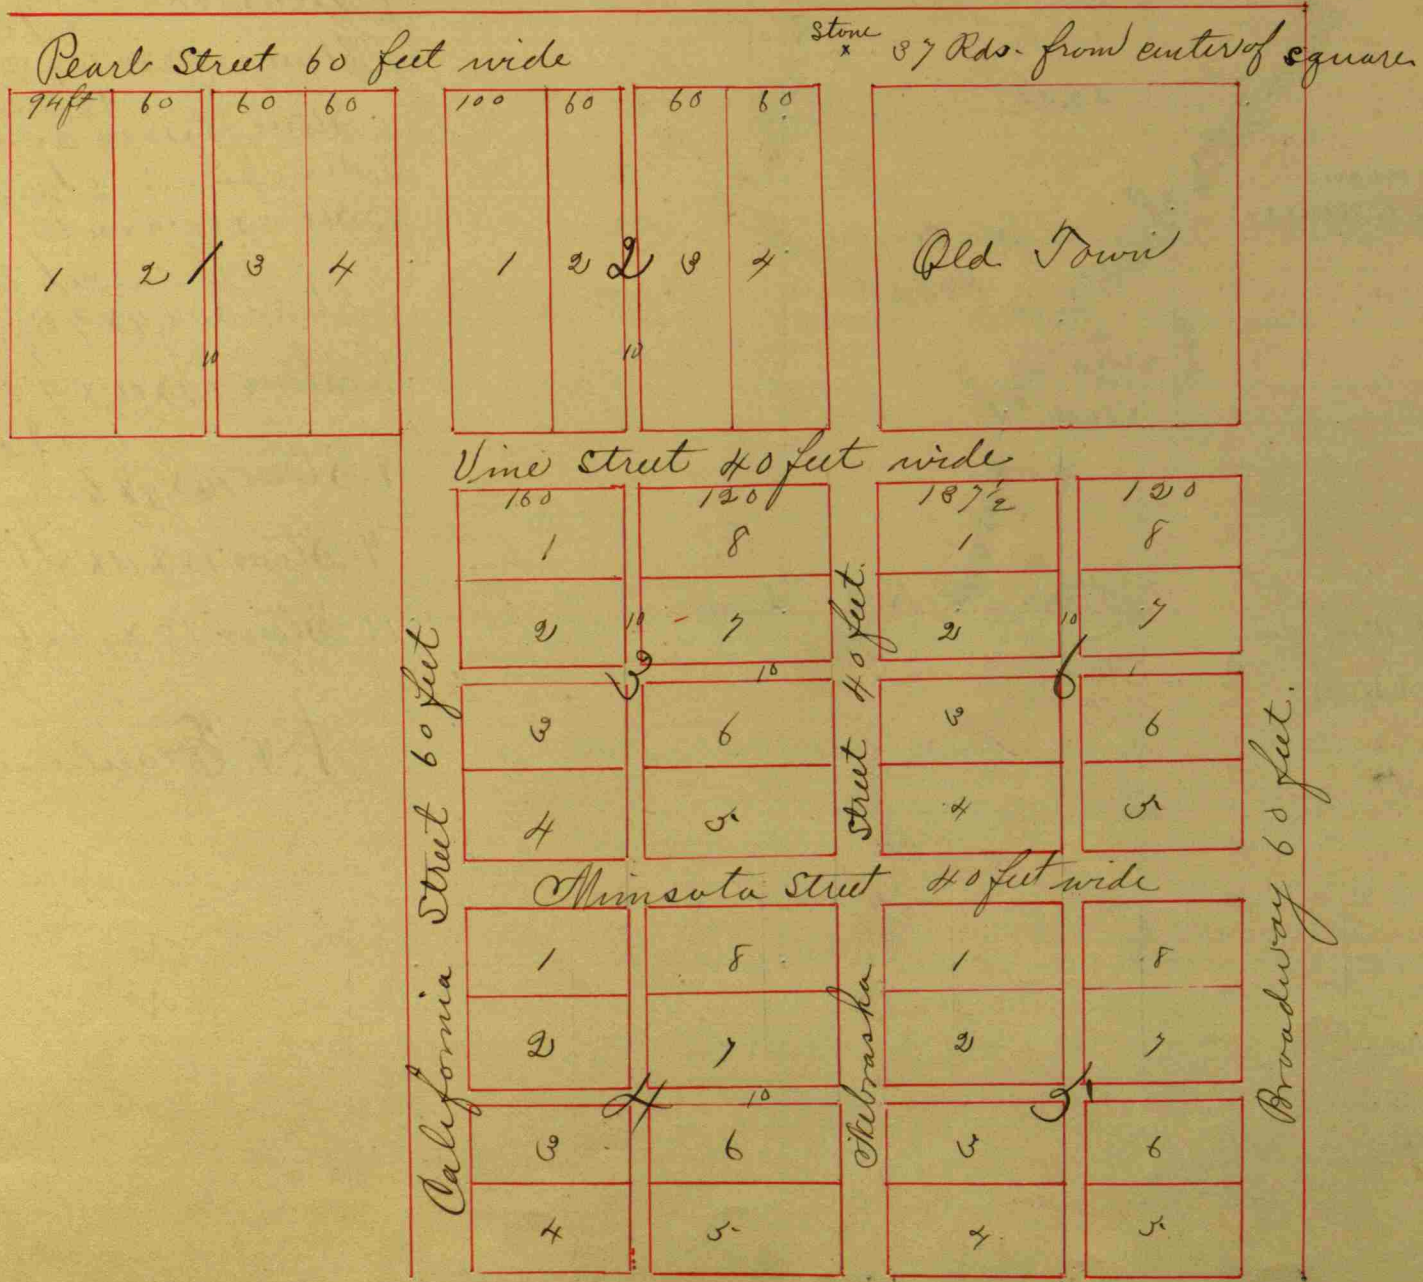 Stone
x
Pearl Street 60 feet wide
37 Rds. from center of square
94ft 60 60 60 100 60 60 60
1 2 1 3 4 1 2 2 3 4 Old Town
10 10
Vine Street 40 feet wide
160 120 137½ 120
1 8 1 8
2 10 7 2 10 7
3 10 6
3 6 3 6
4 5 4 5
California Street 60 feet
Nebraska Street 40 feet
Broadway 60 feet.
Minsota Street 40 feet wide
1 8 1 8
2 7 2 7
4 10 5
3 6 3 6
4 5 4 5